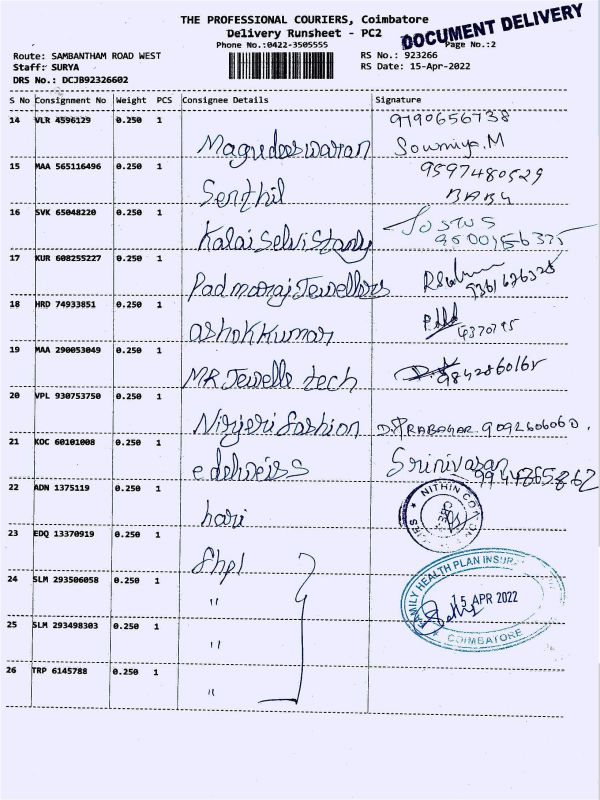 THE PROFESSIONAL COURIERS, Coimbatore
DOCUMENT DELIVERY
Delivery Runsheet - PC2
Phone No.:0422-3505555
Page No.:2
Route: SAMBANTHAM ROAD WEST
RS No.: 923266
Staff: SURYA
RS Date: 15-Apr-2022
DRS No.: DCJB92326602
S No Consignment No Weight PCS Consignee Details Signature
14 VLR 4596129 0.250 1
9790656738
Magudeeswaran Sowmiya.M
15 MAA 565116496 0.250 1
9597480529
Senthil BABU
16 SVK 65048220 0.250 1
Kalai Selvi Stanly
17 KUR 608255227 0.250 1
Padmaraj Jewellers
18 HRD 74933851 0.250 1
ashok kumar
19 MAA 290053049 0.250 1
MR Jewelle tech
20 VPL 930753750 0.250 1
fashion D.PRABAGAR 9092606060.
21 KOC 60101008 0.250 1
edelweiss Srinivasan
9944865862
22 ADN 1375119 0.250 1
hari NITHIN
23 EDQ 13370919 0.250 1
fhpl
FAMILY HEALTH PLAN INSUR
24 SLM 293506058 0.250 1
"
15 APR 2022
25 SLM 293498303 0.250 1
"
COIMBATORE
26 TRP 6145788 0.250 1
"